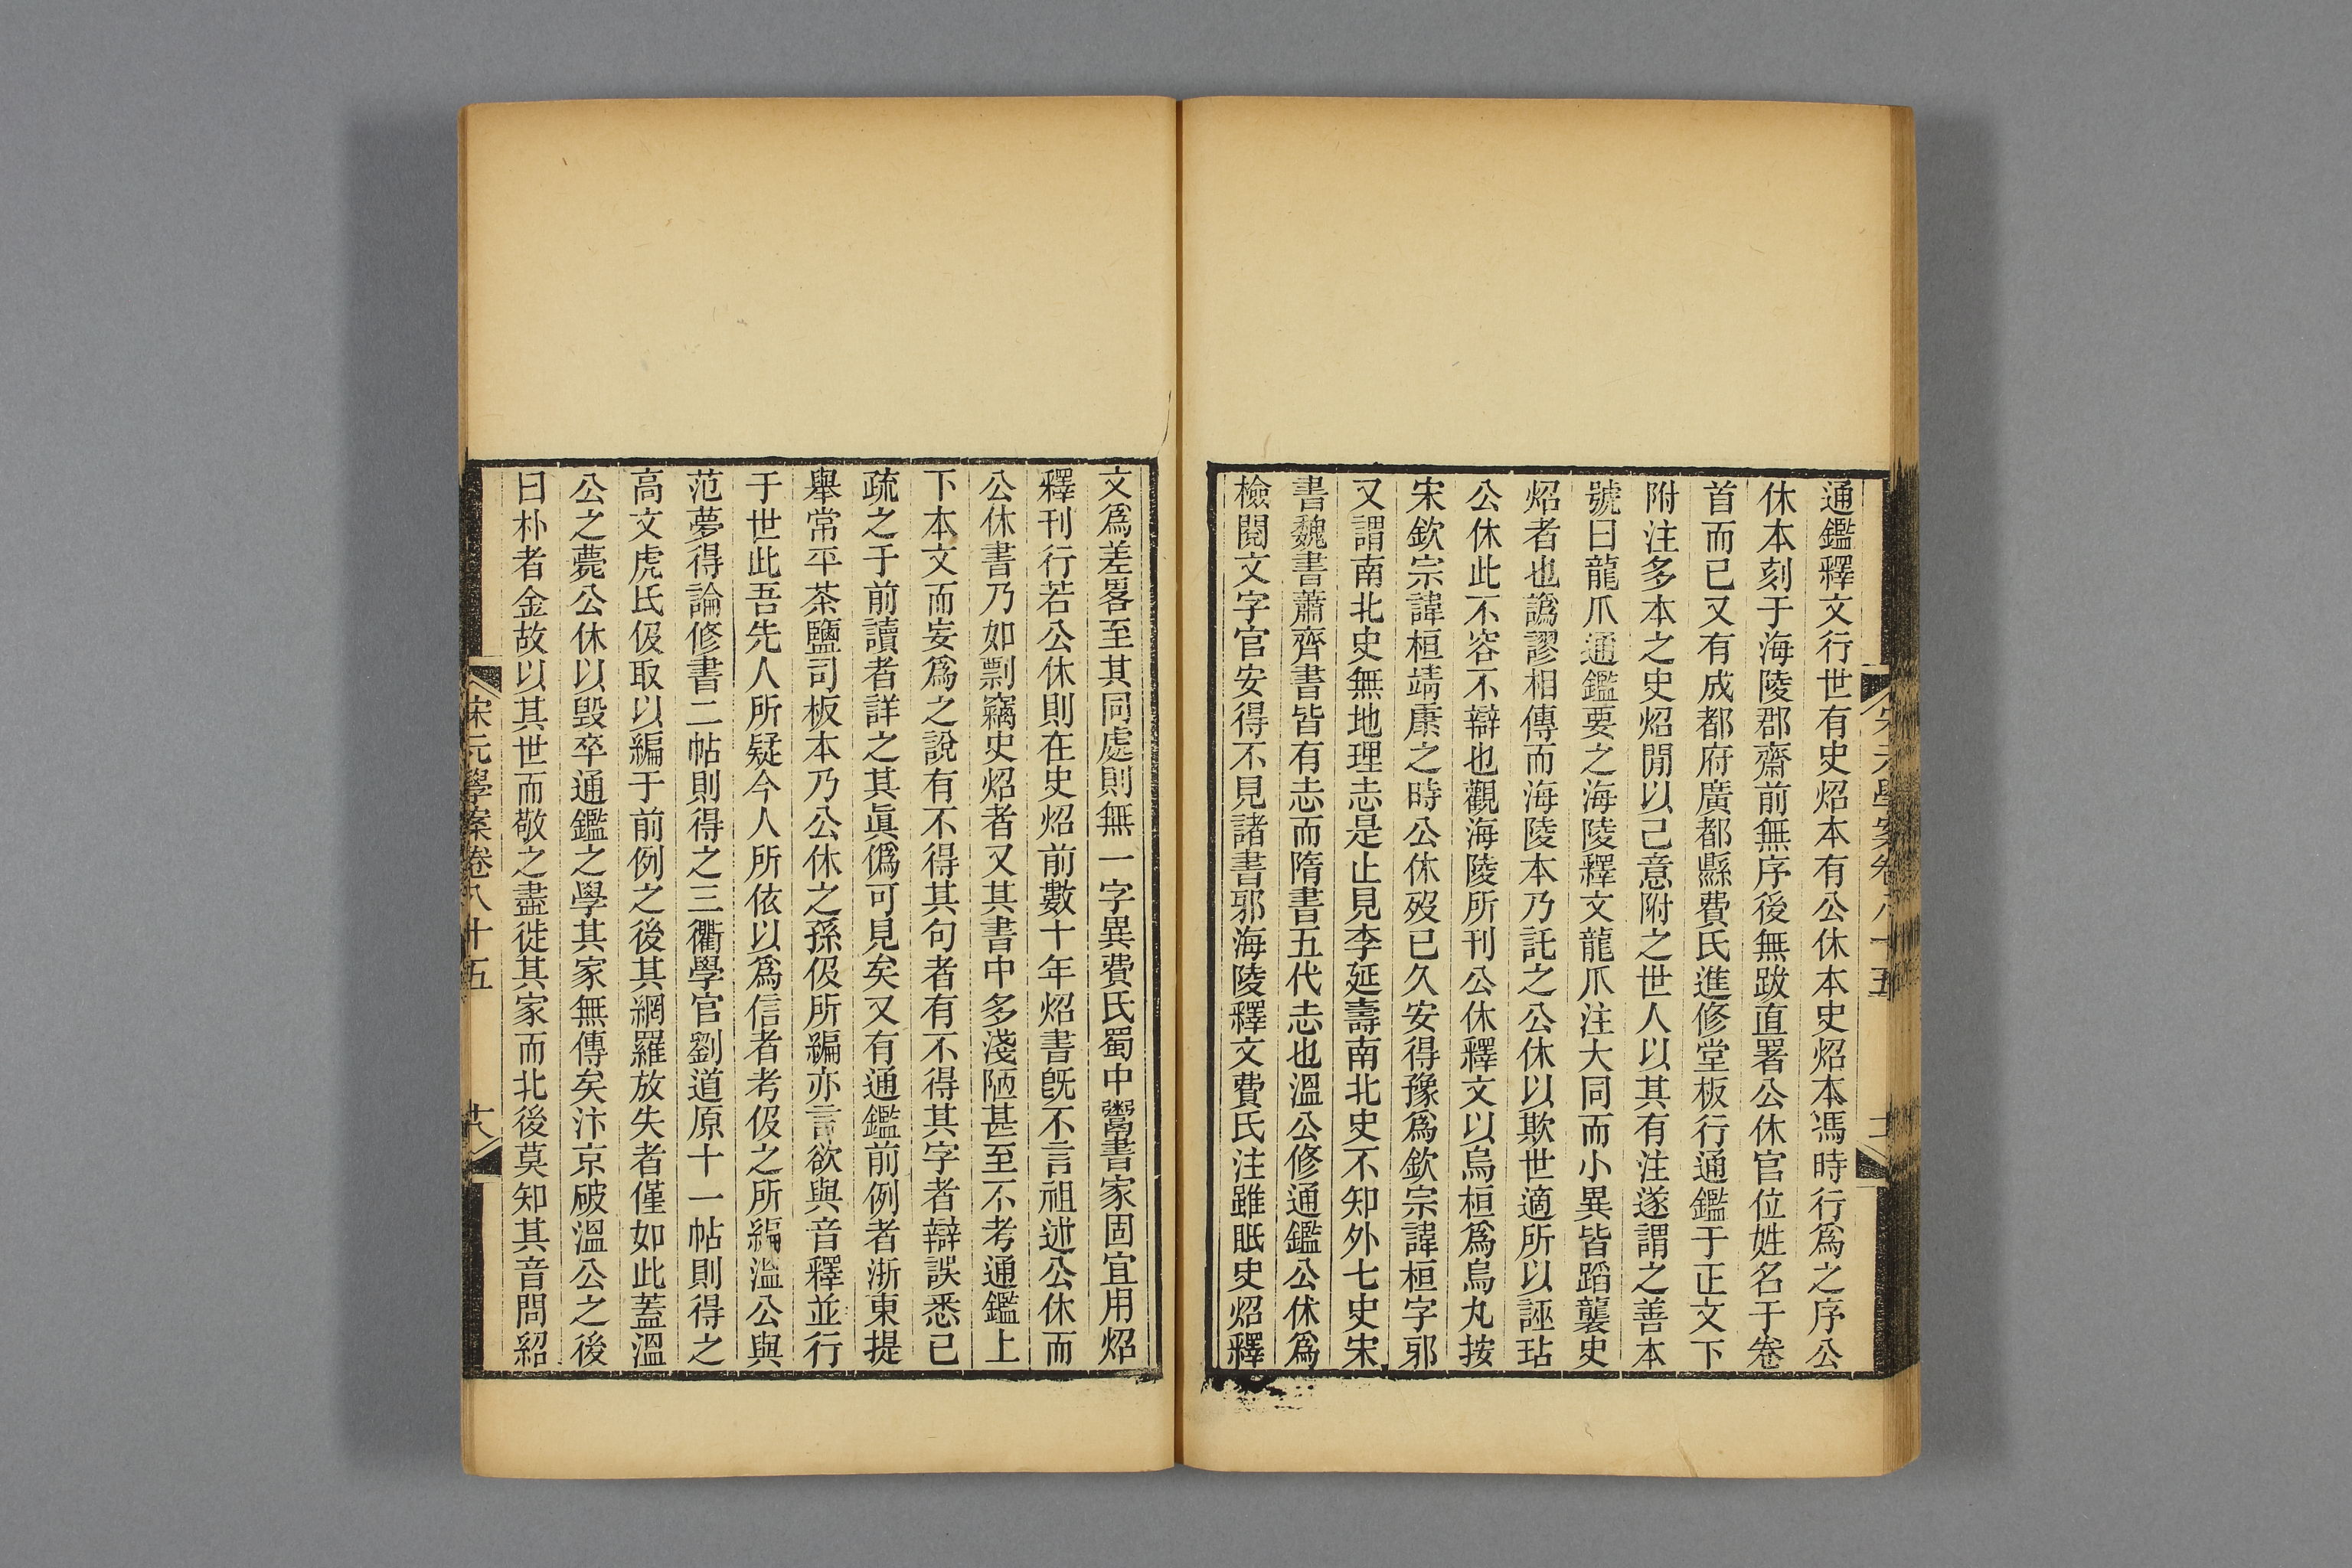 通鑑釋文行世有史炤本有公休本史炤本馮時行爲之序公
休本刻于海陵郡齋前無序後無跋直署公休官位姓名于卷
首而已又有成都府廣都縣費氏進修堂板行通鑑于正文下
附注多本之史炤閒以己意附之世人以其有注遂謂之善本
號曰龍爪通鑑要之海陵釋文龍爪注大同而小異皆蹈襲史
炤者也譌謬相傳而海陵本乃託之公休以欺世適所以誣玷
公休此不容不辯也觀海陵所刊公休釋文以烏桓爲烏丸按
宋欽宗諱桓靖康之時公休歿已久安得豫爲欽宗諱桓字邪
又謂南北史無地理志是止見李延壽南北史不知外七史宋
書魏書蕭齊書皆有志而隋書五代志也溫公修通鑑公休爲
檢閱文字官安得不見諸書邪海陵釋文費氏注雖眂史炤釋
文爲差畧至其同處則無一字異費氏蜀中鬻書家固宜用炤
釋刊行若公休則在史炤前數十年炤書旣不言祖述公休而
公休書乃如剽竊史炤者又其書中多淺陋甚至不考通鑑上
下本文而妄爲之說有不得其句者有不得其字者辯誤悉已
疏之于前讀者詳之其眞僞可見矣又有通鑑前例者浙東提
舉常平茶鹽司板本乃公休之孫伋所編亦言欲與音釋並行
于世此吾先人所疑今人所依以爲信者考伋之所編溫公與
范夢得論修書二帖則得之三衢學官劉道原十一帖則得之
高文虎氏伋取以編于前例之後其網羅放失者僅如此蓋溫
公之薨公休以毀卒通鑑之學其家無傳矣汴京破溫公之後
曰朴者金故以其世而敬之盡徙其家而北後莫知其音問紹
宋元學案卷八十五